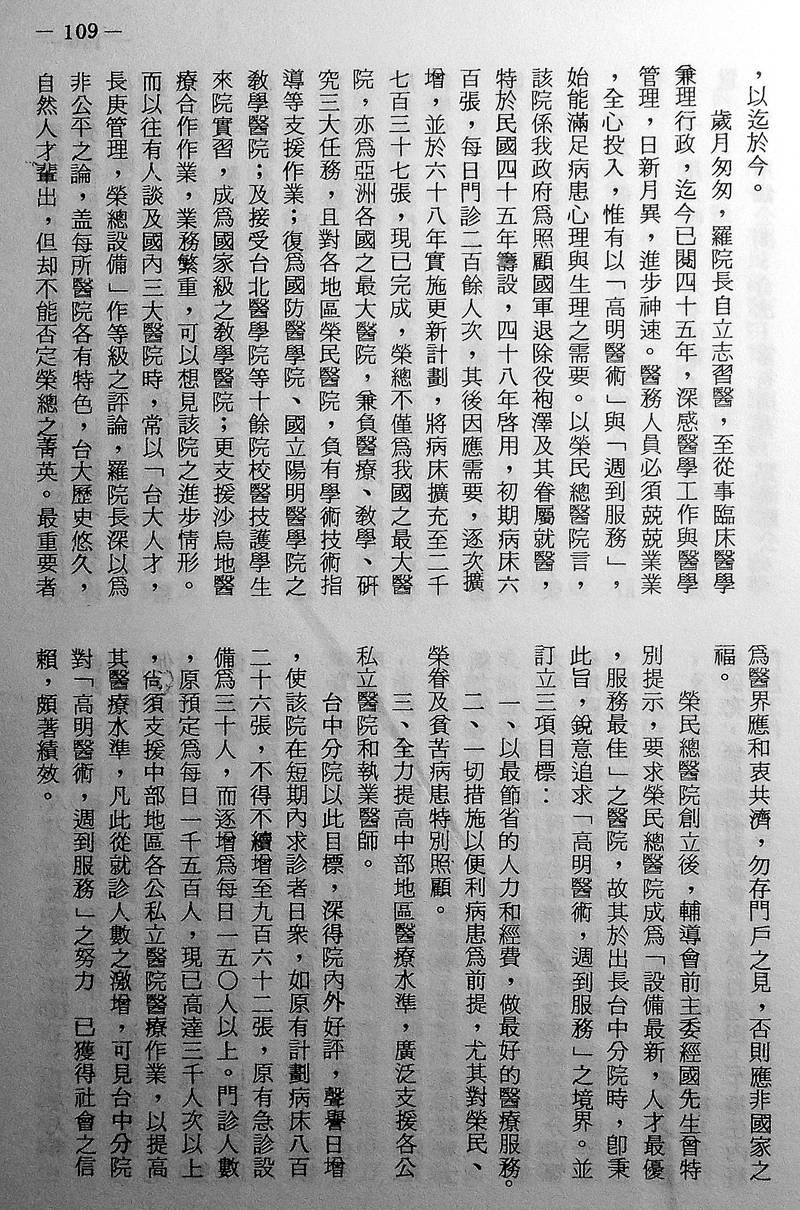 — 109 —
，以迄於今。
歲月匆匆，羅院長自立志習醫，至從事臨床醫學
兼理行政，迄今已閱四十五年，深感醫學工作與醫學
管理，日新月異，進步神速。醫務人員必須兢兢業業
，全心投入，惟有以「高明醫術」與「週到服務」，
始能滿足病患心理與生理之需要。以榮民總醫院言，
該院係我政府為照顧國軍退除役袍澤及其眷屬就醫，
特於民國四十五年籌設，四十八年啓用，初期病床六
百張，每日門診二百餘人次，其後因應需要，逐次擴
增，並於六十八年實施更新計劃，將病床擴充至二千
七百三十七張，現已完成，榮總不僅為我國之最大醫
院，亦為亞洲各國之最大醫院，兼負醫療、教學、研
究三大任務，且對各地區榮民醫院，負有學術技術指
導等支援作業；復為國防醫學院、國立陽明醫學院之
教學醫院；及接受台北醫學院等十餘院校醫技護學生
來院實習，成為國家級之教學醫院；更支援沙烏地醫
療合作作業，業務繁重，可以想見該院之進步情形。
而以往有人談及國內三大醫院時，常以「台大人才，
長庚管理，榮總設備」作等級之評論，羅院長深以為
非公平之論，盖每所醫院各有特色，台大歷史悠久，
自然人才輩出，但却不能否定榮總之菁英。最重要者
為醫界應和衷共濟，勿存門戶之見，否則應非國家之
福。
榮民總醫院創立後，輔導會前主委經國先生曾特
別提示，要求榮民總醫院成為「設備最新，人才最優
，服務最佳」之醫院，故其於出長台中分院時，卽秉
此旨，銳意追求「高明醫術，週到服務」之境界。並
訂立三項目標：
一、以最節省的人力和經費，做最好的醫療服務。
二、一切措施以便利病患為前提，尤其對榮民、
榮眷及貧苦病患特別照顧。
三、全力提高中部地區醫療水準，廣泛支援各公
私立醫院和執業醫師。
台中分院以此目標，深得院內外好評，聲譽日增
，使該院在短期內求診者日衆，如原有計劃病床八百
二十六張，不得不續增至九百六十二張，原有急診設
備為三十人，而逐增為每日一五〇人以上。門診人數
，原預定為每日一千五百人，現已高達三千人次以上
，尙須支援中部地區各公私立醫院醫療作業，以提高
其醫療水準，凡此從就診人數之激增，可見台中分院
對「高明醫術，週到服務」之努力　已獲得社會之信
賴，頗著績效。